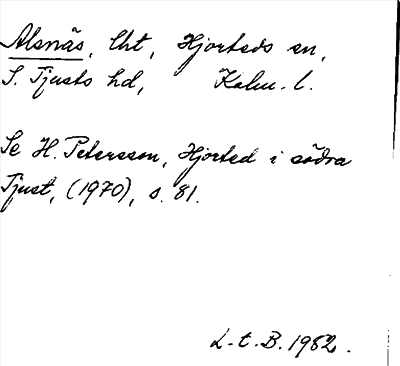 Alsnäs, lht, Hjorteds sn,
S. Tjusts hd, Kalm. l.
Se H. Petersson, Hjorted i södra
Tjust, (1970), s. 81.
L-t. B. 1982.